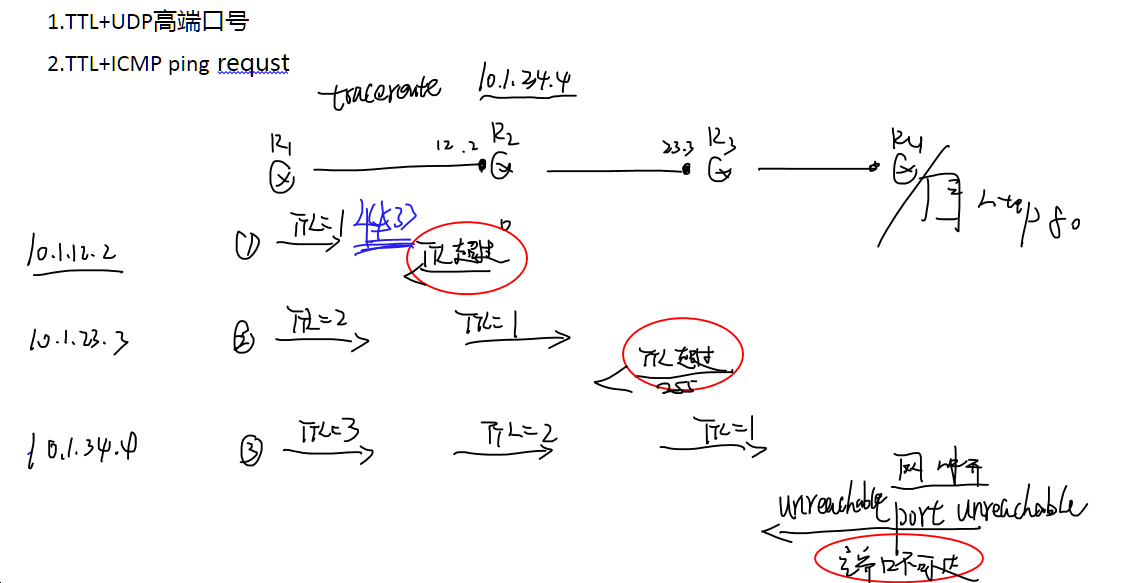 1.TTL+UDP高端口号
2.TTL+ICMP ping requst
traceroute 10.1.34.4
R1 12.2 R2 23.3 R3 R4
http 80
10.1.12.2 ① TTL=1 44533 TTL超过 0
10.1.23.3 ② TTL=2 TTL=1 TTL超过
255
10.1.34.4 ③ TTL=3 TTL=2 TTL=1
unreachable port unreachable
端口不可达